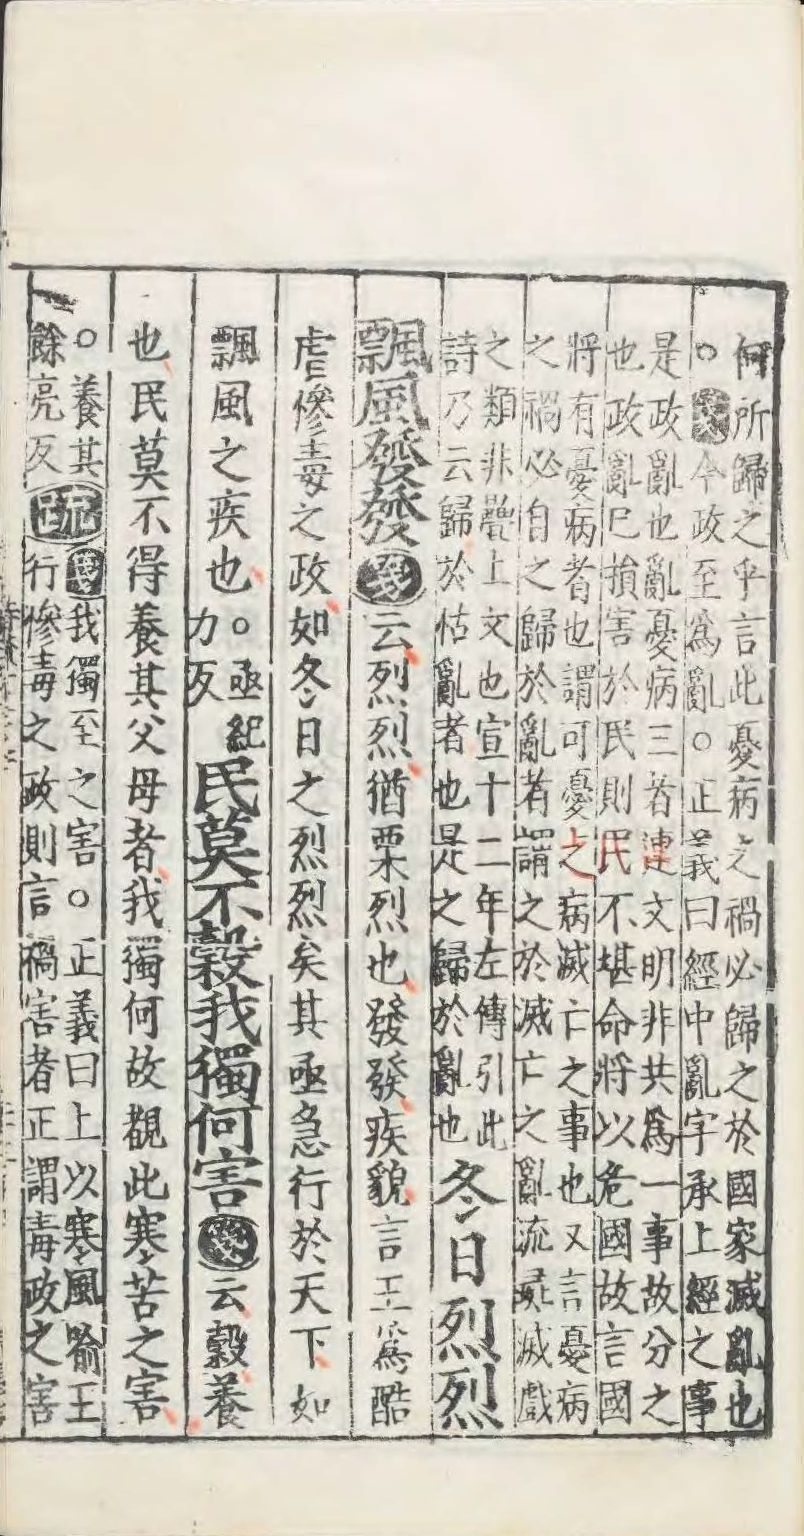 何所歸之乎言此憂病之禍必歸之於國家滅亂也
○箋今政至爲亂○正義曰經中亂字承上經之事
是政亂也亂憂病三者連文明非共爲一事故分之
也政亂巳損害於民則民不堪命將以危國故言國
將有憂病者也謂可憂之病滅亡之事也又言憂病
之禍必自之歸於亂者謂之於滅亡之亂流彘滅戲
之類非疊上文也宣十二年左傳引此
詩乃云歸於怙亂者也是之歸於亂也
冬日烈烈
飄風發發箋云烈烈猶栗烈也發發疾貌言王爲酷
虐慘毒之政如冬日之烈烈矣其亟急行於天下如
飄風之疾也
○亟紀
力反
民莫不穀我獨何害箋云穀養
也民莫不得養其父母者我獨何故覩此寒苦之害
○養其
餘亮反
疏
箋我獨至之害○正義曰上以寒風喻王
行慘毒之政則言禍害者正謂毒政之害